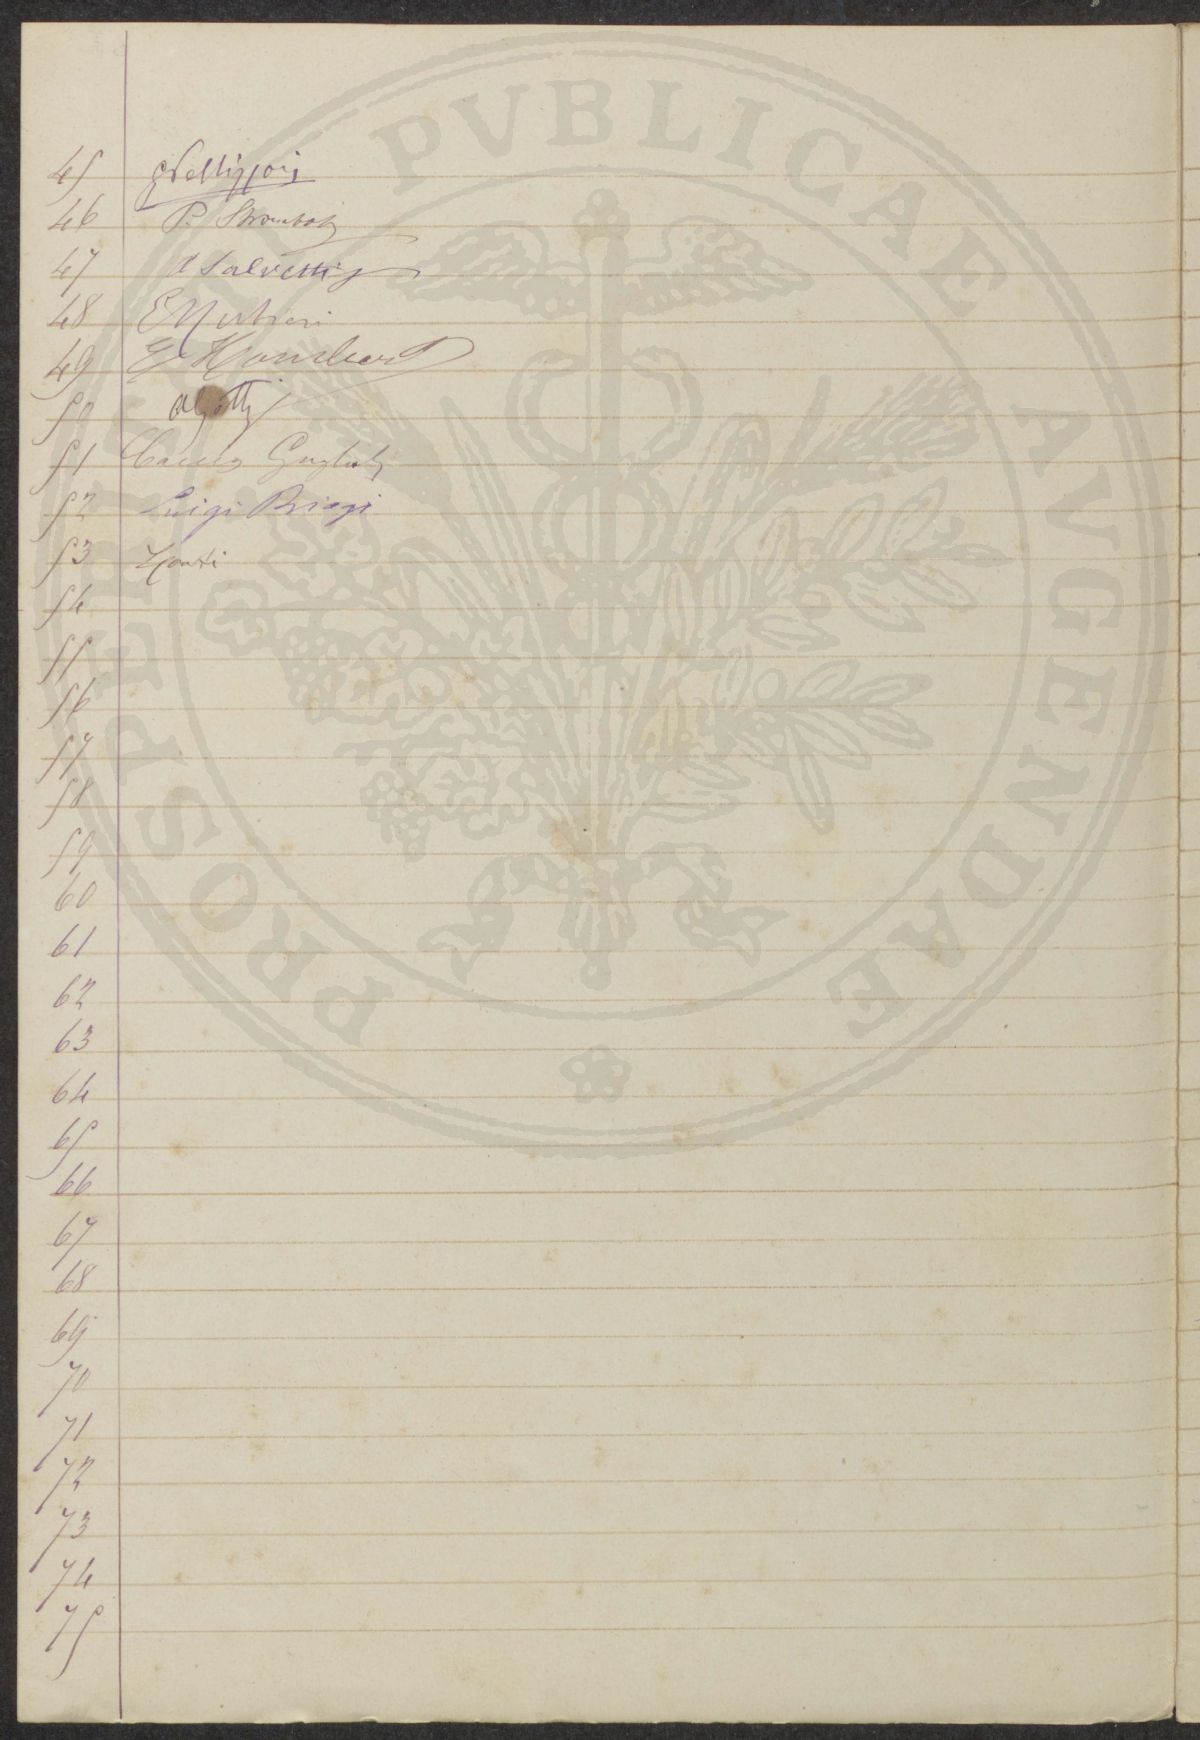 45
46 P.
47 A Salvetti
48 E
49 E
50
51 Guglielmo
52 Luigi Biagi
53 Monti
54
55
56
57
58
59
60
61
62
63
64
65
66
67
68
69
70
71
72
73
74
75
PROSPERITATI PVBLICAE AVGENDAE